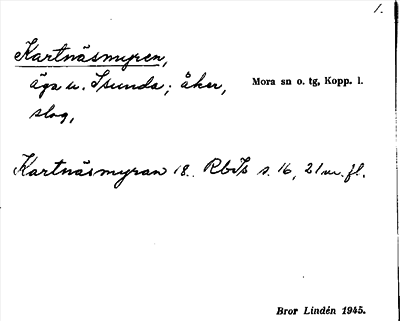 1.
Kartnäsmyren,
äga u. Isunda; åker,
Mora sn o. tg, Kopp. l.
slog,
Kartnäsmyran 18.. RbTs s. 16, 21 m. fl.
Bror Lindén 1945.